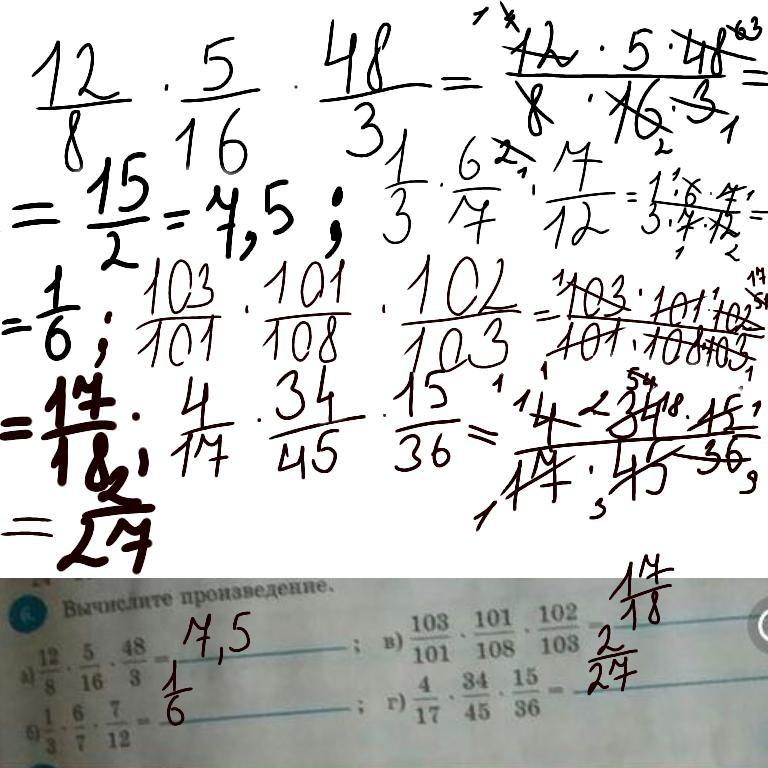 12/8 · 5/16 · 48/3 = 12 · 5 · 48 / 8 · 16 · 3 =
= 15/2 = 7,5 ; 1/3 · 6/7 · 7/12 = 1 · 6 · 7 / 3 · 7 · 12 =
= 1/6 ; 103/101 · 101/108 · 102/103 = 103 · 101 · 102 / 101 · 108 · 103
= 17/18 ; 4/17 · 34/45 · 15/36 = 4 · 34 · 15 / 17 · 45 · 36
= 2/27
6. Вычислите произведение.
а) 12/8 · 5/16 · 48/3 = 7,5 ; в) 103/101 · 101/108 · 102/103 = 17/18
б) 1/3 · 6/7 · 7/12 = 1/6 ; г) 4/17 · 34/45 · 15/36 = 2/27